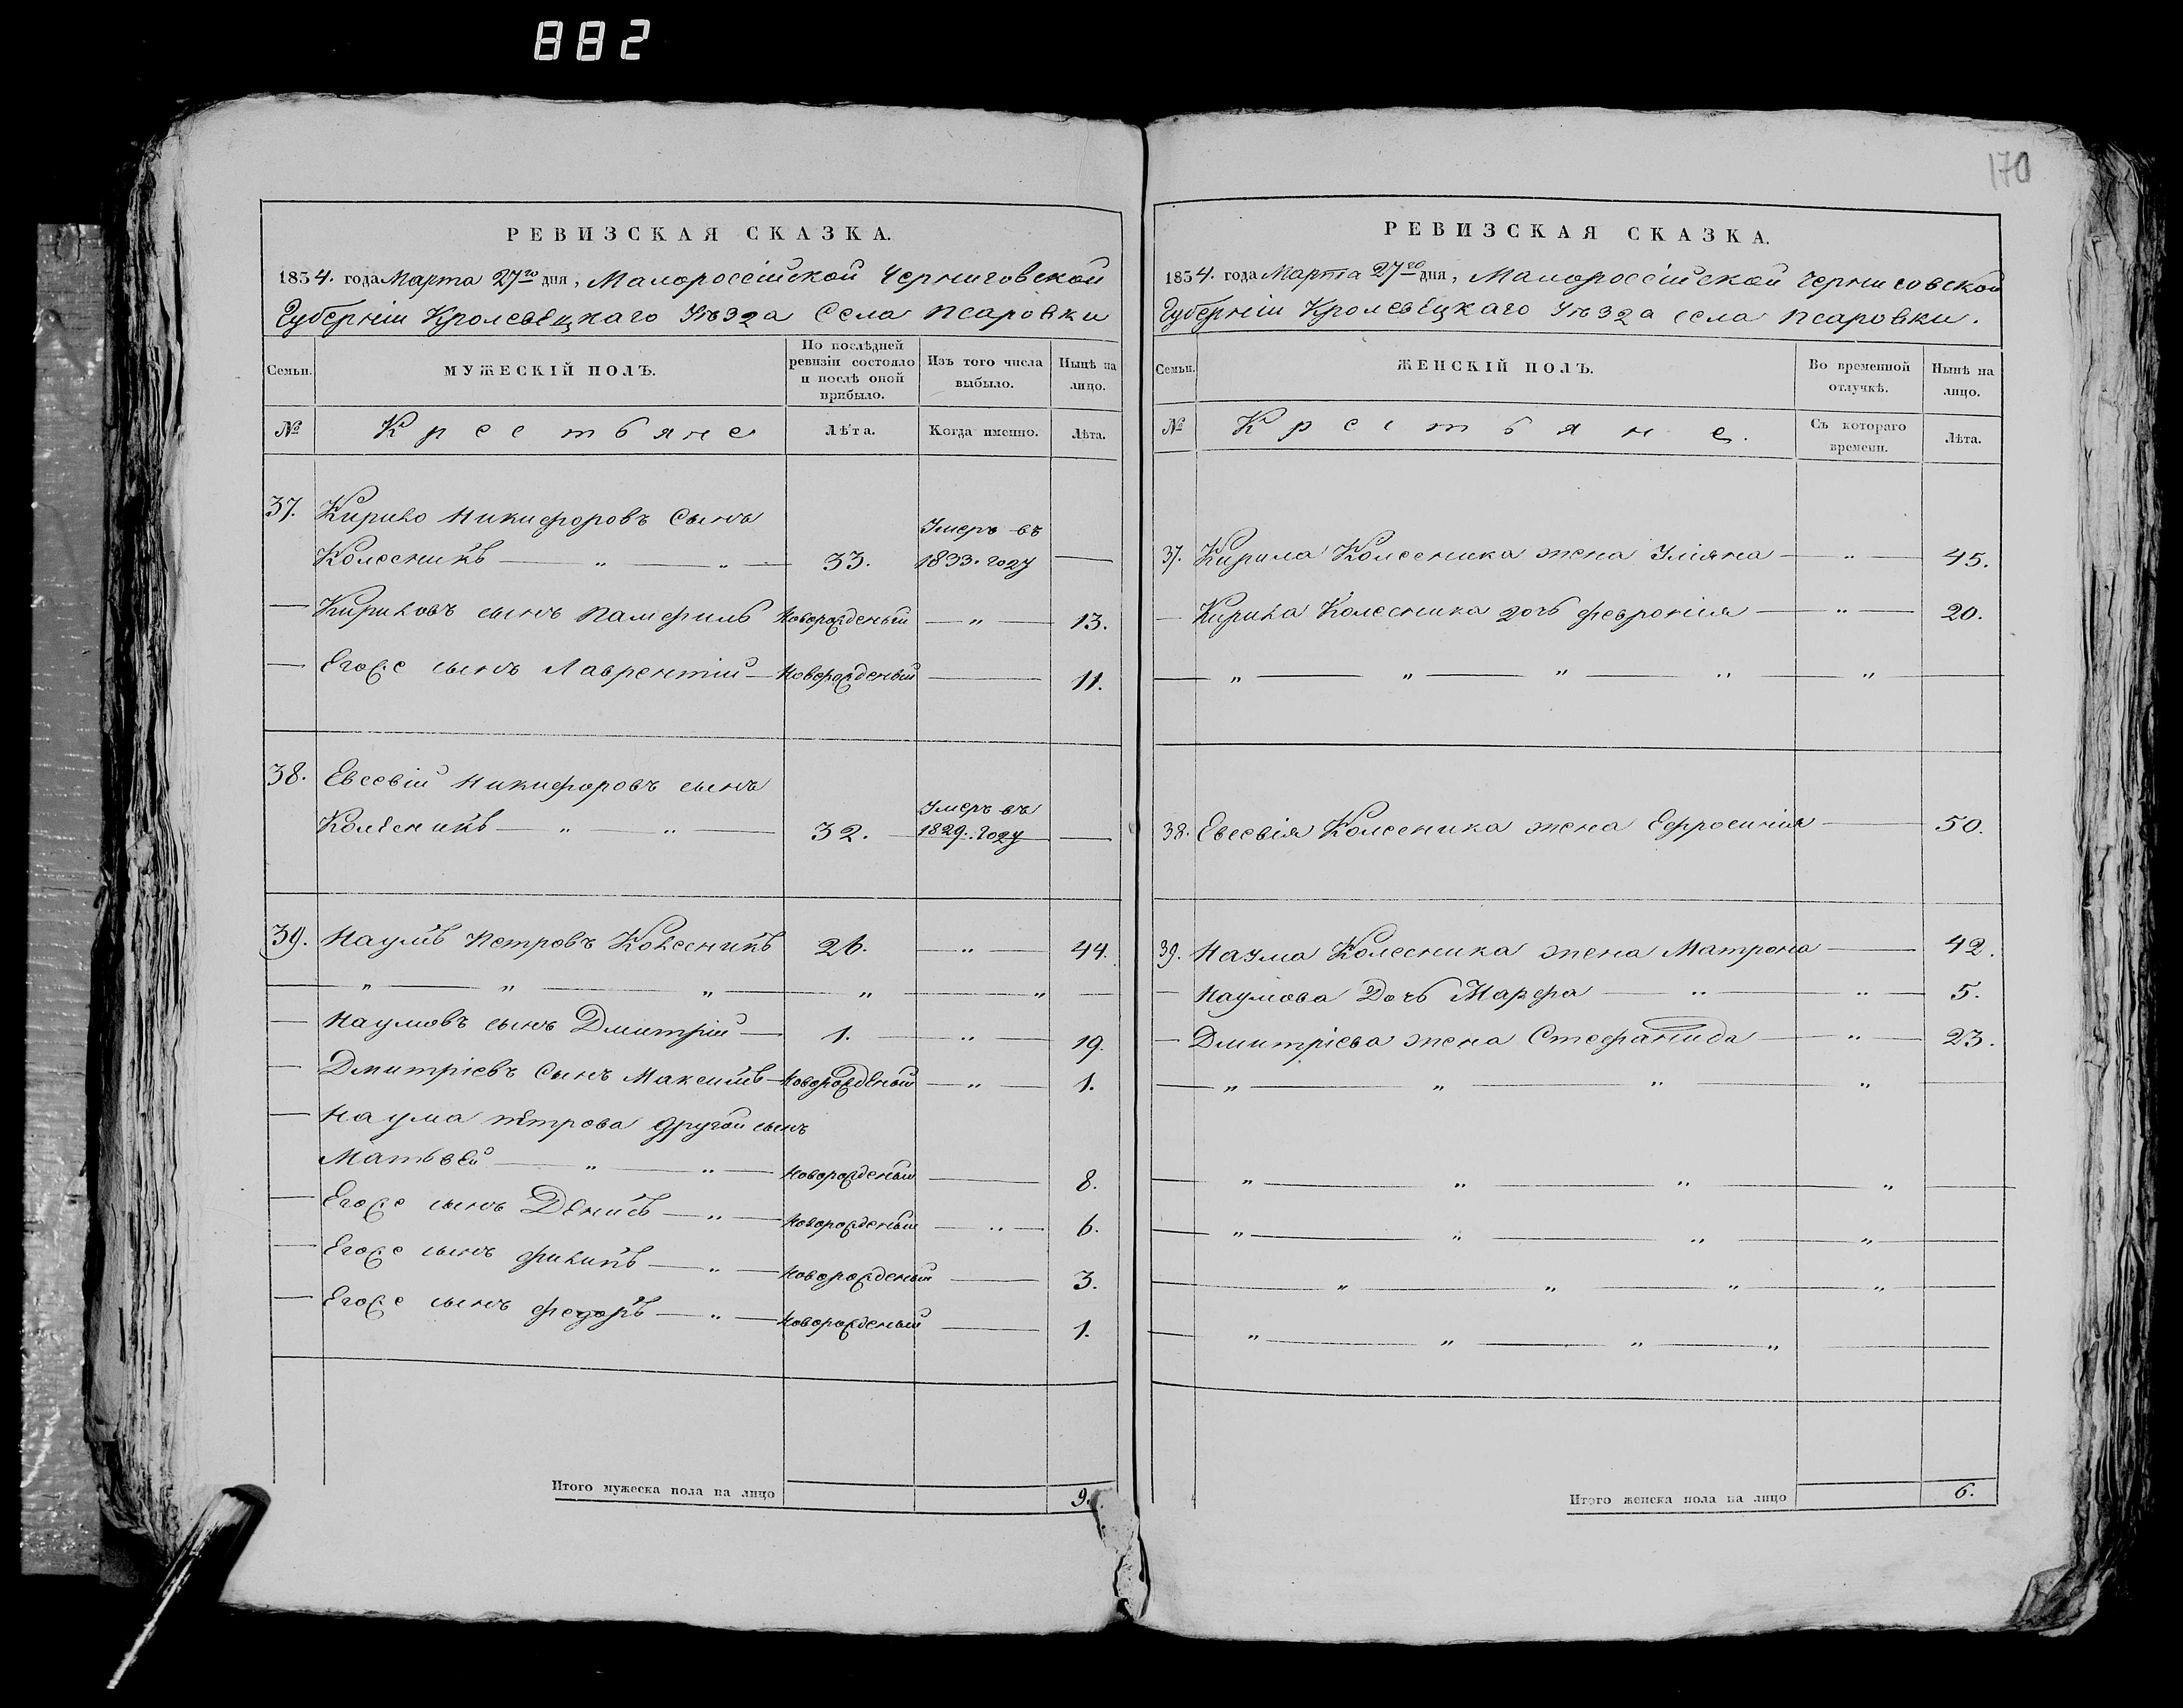 882
170
РЕВИЗСКАЯ СКАЗКА.
1834. года Марта 27го дня, Малороссійской Черниговской
Губерніи Кролевецкаго Уѣзда Села Псаровки
Семьи. МУЖЕСКІЙ ПОЛЪ. По послѣдней ревизіи состояло и послѣ оной прибыло. Изъ того числа выбыло. Нынѣ на лицо.
№ Крестьяне Лѣта. Когда именно. Лѣта.
37. Кирило Никифоровъ Сынъ
Колесникъ — „ — „ — 33. Умеръ въ 1833. году —
— Кириловъ сынъ Памфилъ Новорожденый — „ — 13.
— Егоже сынъ Лаврентій — Новорожденый — 11.
38. Евсевій Никифоровъ сынъ
Колесникъ — „ — „ — 32. — Умеръ въ 1829. году —
39. Наумъ Петровъ Колесникъ 26. — „ — 44.
— „ — „ — „ — „ — „ —
— Наумовъ сынъ Дмитрій — 1. — „ — 19.
— Дмитріевъ Сынъ Максимъ — Новорожденый — „ — 1.
— Наума Петрова другой сынъ
Матвей — „ — „ — Новорожденый — 8.
— Егоже сынъ Денисъ — „ — Новорожденый — „ — 6.
— Егоже сынъ Филипъ — „ — Новорожденый — 3.
— Егоже сынъ Федоръ — „ — Новорожденый — 1.
Итого мужеска пола на лицо 9.
РЕВИЗСКАЯ СКАЗКА.
1834. года Марта 27го дня, Малороссійской Черниговской
Губерніи Кролевецкаго Уѣзда села Псаровки.
Семьи. ЖЕНСКІЙ ПОЛЪ. Во временной отлучкѣ. Нынѣ на лицо.
№ Крестьяне. Съ котораго времени. Лѣта.
37. Кирила Колесника жена Уліяна — „ — 45.
— Кирила Колесника дочь Февронія — „ — 20.
— „ — „ — „ — „ — „ —
38. Евсевія Колесника жена Ефросинія — 50.
39. Наума Колесника жена Матрона — 42.
— Наумова Дочь Марфа — „ — „ — 5.
— Дмитріева жена Стефанида — „ — 23.
— „ — „ — „ — „ —
— „ — „ — „ — „ —
— „ — „ — „ — „ —
— „ — „ — „ — „ —
— „ — „ — „ — „ —
Итого женска пола на лицо 6.